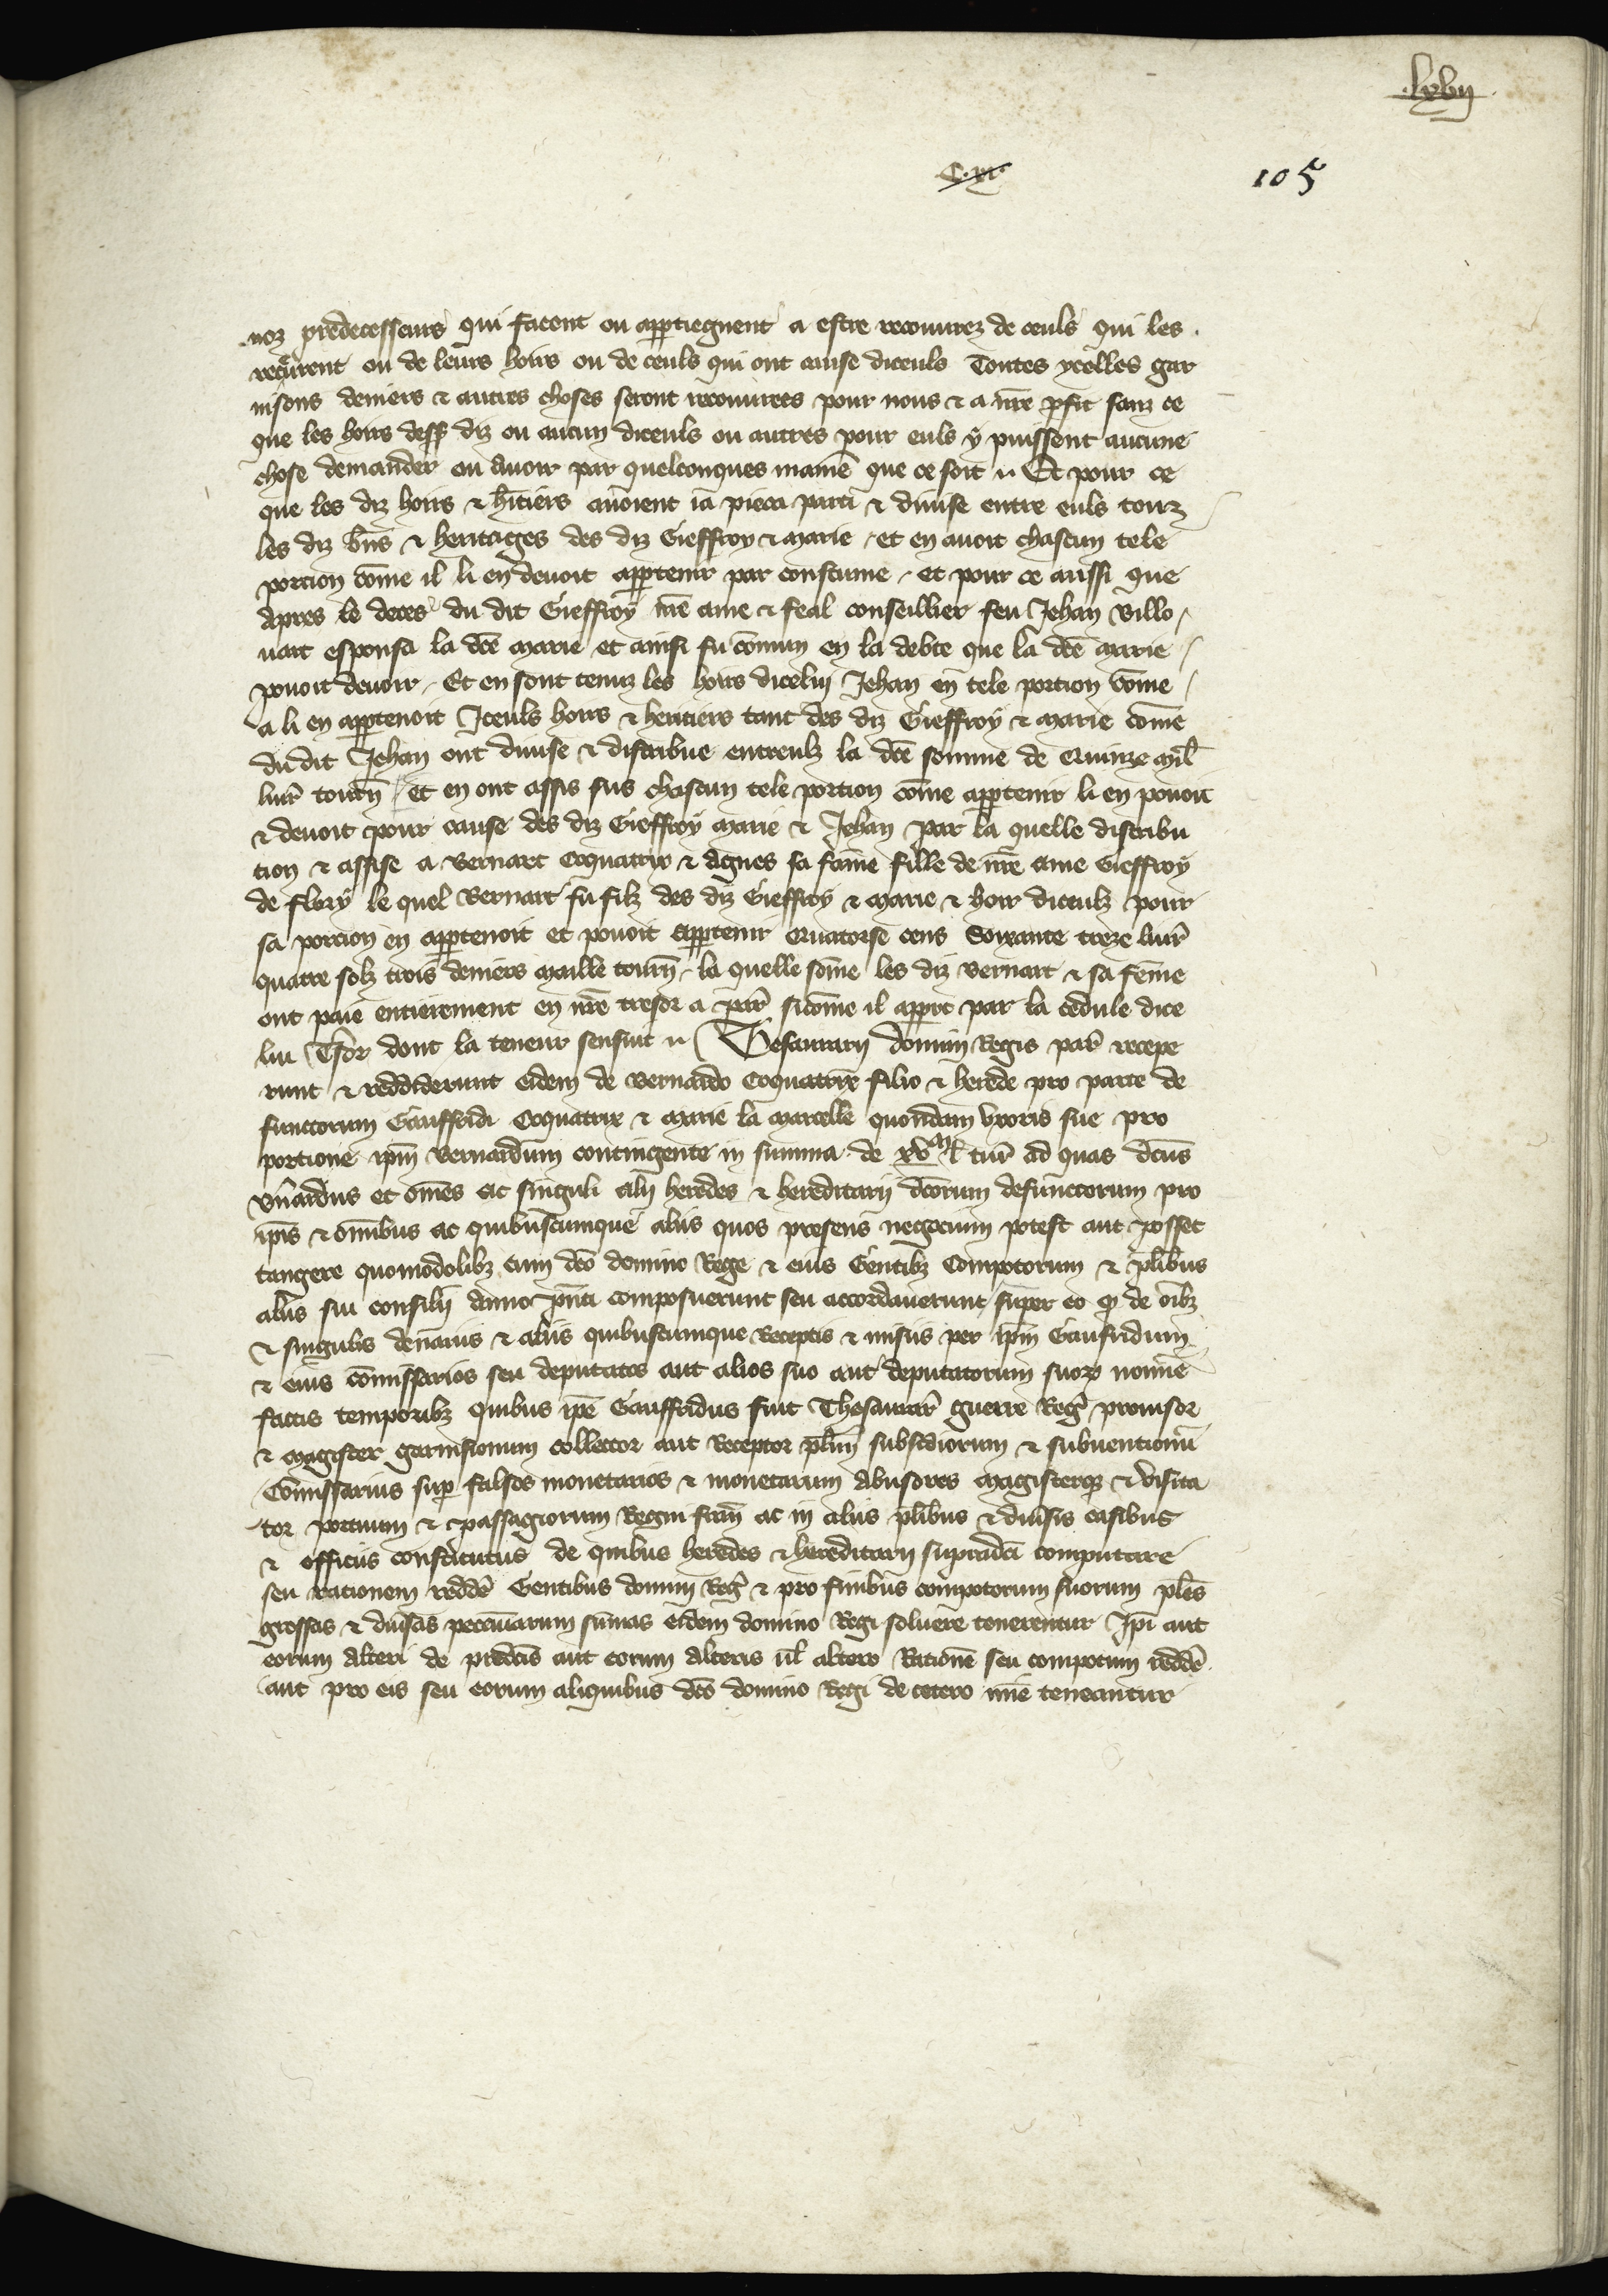 .lxvij.
C.xi.
105
noz predecesseurs qui facent ou appartiegnent a estre recouurez de ceuls qui les
reçurent ou de leurs hoirs ou de ceuls qui ont cause diceuls Toutes ycelles gar
nisons deniers & autres choses seront recouurees pour nous & a nr̄e ꝓfit sanz ce
que les hoirs dess diz ou aucun diceuls ou autres pour euls y puissent aucune
chose demander ou auoir par quelconques manie᷑ que ce soit ıı Et pour ce
que les diz hoirs & h̄itiers auoient ia pieca parti & diuise entre euls touz
les diz biēs & heritages des diz Gieffroy & marie / et en auoit chascun tele
porcion cōme il li en deuoit appartenir par coustume / et pour ce aussi que
apres le deces du dit Gieffroy nr̄e ame & feal conseillier feu Jehan Billo /
uart espousa la dcē marie et ainsi fu cōmun en la debte que la dcē marie /
pouoit deuoir / Et en sont tenuz les hoirs dicelui Jehan en tele portion cōme /
a li en appartenoit Iceuls hoirs & heritiers tant des diz Gieffroy & marie cōme
du dit Jehan ont diuise & distribue entreulz la dcē somme de Quinze mil
liur̄ tourn̄ / Et en ont assis sus chascun tele portion cōme appartenir li en pouoit
& deuoit pour cause des diz Gieffroy marie & Jehan par la quelle distribu
tion & assise a Bernart Coquatrix & Agnes sa fame fille de nr̄e ame Gieffroy
de flory le quel Bernart fu filz des diz Gieffroy & marie & hoir diceulz pour
sa porcion en appartenoit et pouoit appartenir Quatorse cens Soixante treze liur̄
quatre solz trois deniers maille tourn̄ / la quelle sōme les diz Bernart & sa feme
ont paie entierement en nr̄e tresor a par̄ sicōme il appert par la cedule dice
lui Tsor dont la teneur sensuit ıı Thesaurarij domini Regis par̄ recepe
runt & reddiderunt eidem de Bernardo Coquatrix filio & herede pro parte de
functorum Gauffridi Coquatrix & marie la marcelle quondam vxoris sue pro
portione ip̄m Bernardum contingente in summa de xvᵐ l tur̄ ad quas dcūs
Bn̄ardus et om̄es ac singuli alij heredes & hereditarij dcōrum defunctorum pro
ip̄is & om̄ibus ac quibuscumque aliis quos presens negocium potest aut posset
tangere quomodolibꝫ cum dcō domino Rege & eius Gentibꝫ Compotorum & pl̄ibus
aliis sui consilij anno pn̄ti composuerunt seu accordauerunt super eo ꝙ de oībꝫ
& singulis denariis & aliis quibuscumque Receptis & misiis per ip̄m Gaufridum
& eius cōmissarios seu deputatos aut alios suo aut deputatorum suoꝝ nomīe
factis temporibꝫ quibus ip̄e Gauffridus fuit Thesaurar̄ guerre Reḡ prouisor
& magister garnisionum collector aut Receptor pl̄im subsidiorum & subuentionū
Cōmissarius sup̄ falsos monetarios & monetarum abusores magisterqꝫ & visita
tor portuum & passagiorum Regni fran̄ ac in aliis pl̄ibus & diūsis casibus
& officiis constitutus de quibus heredes & hereditarij supradcī computare
seu rationem reddē Gentibus domini Reḡ & pro finibus compotorum suorum pl̄es
grossas & diūsas peccuniarum sūmas eidem domino Regi soluere tenerentur Ip̄i aut
eorum alteri de p̄dcīs aut eorum alteris ul̄ altero Rationē seu compotum reddē
aut pro eis seu eorum aliquibus dcō domino Regi de cetero mīe teneantur